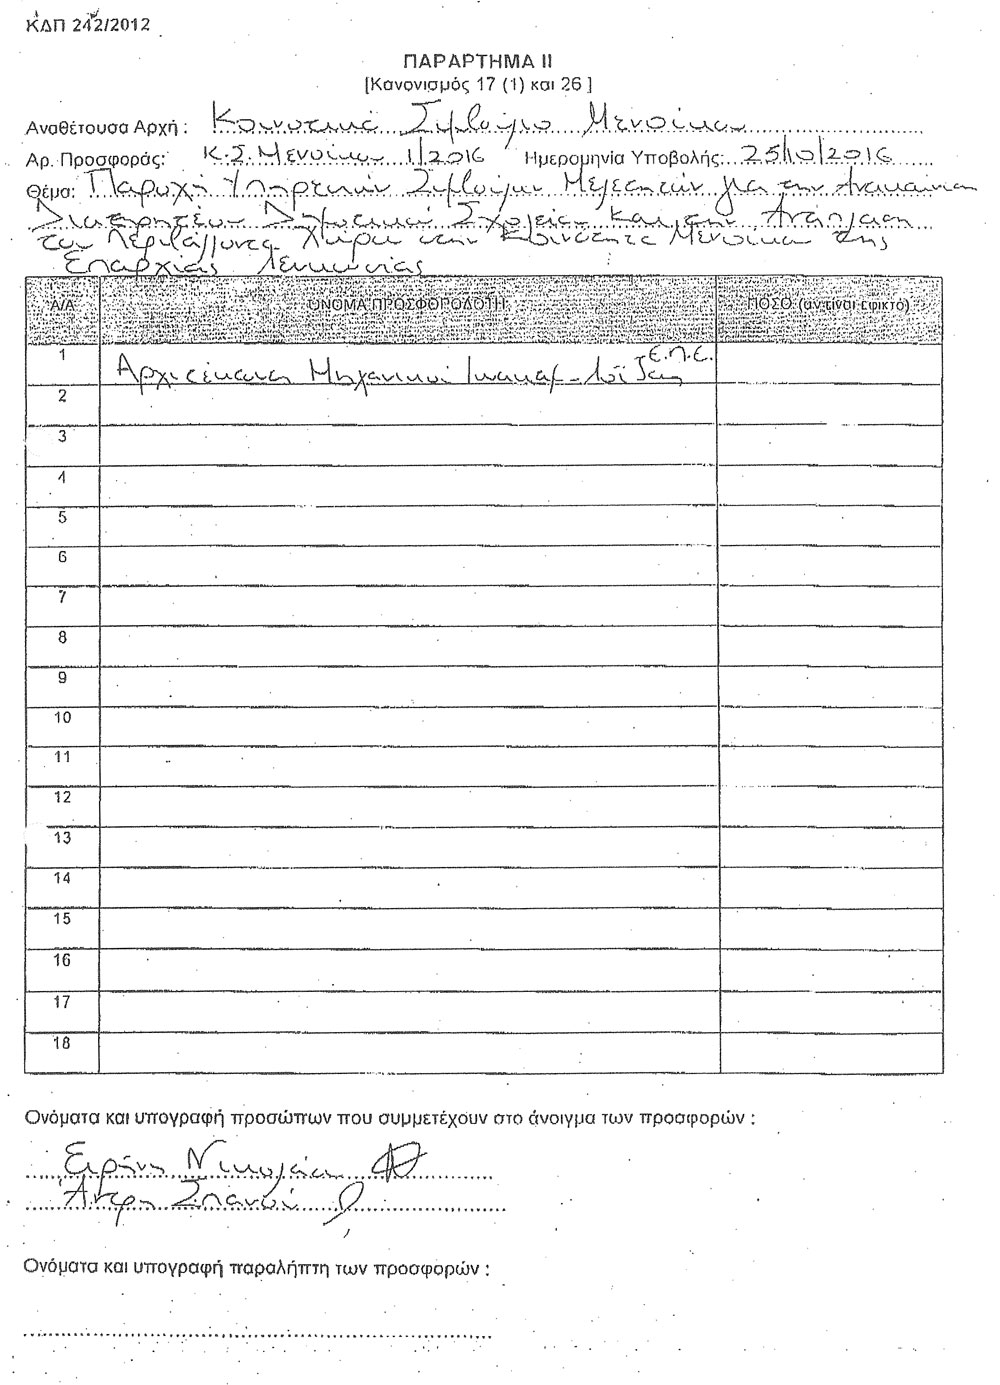 ΚΔΠ 242/2012
ΠΑΡΑΡΤΗΜΑ ΙΙ
[Κανονισμός 17 (1) και 26 ]
Αναθέτουσα Αρχή : Κοινοτικό Συμβούλιο Μενοίκου
Αρ. Προσφοράς: Κ.Σ. Μενοίκου 1/2016 Ημερομηνία Υποβολής: 25/10/2016
Θέμα: Παροχή Υπηρεσιών Συμβούλων Μελετητών για την Ανακαίνιση
Διατηρητέου Δημοτικού Σχολείου και την Ανάπλαση
του Περιβάλλοντα Χώρου στην Κοινότητα Μενοίκου της
Επαρχίας Λευκωσίας
Α/Α ΟΝΟΜΑ ΠΡΟΣΦΟΡΟΔΟΤΗ ΠΟΣΟ (αν είναι εφικτό)
1 Αρχιτέκτονες Μηχανικοί Ιωακείμ - Λοΐζας Ε.Π.Ε.
2
3
4
5
6
7
8
9
10
11
12
13
14
15
16
17
18
Ονόματα και υπογραφή προσώπων που συμμετέχουν στο άνοιγμα των προσφορών :
Ειρήνη Νικολάου
Άντρη Σπανού
Ονόματα και υπογραφή παραλήπτη των προσφορών :